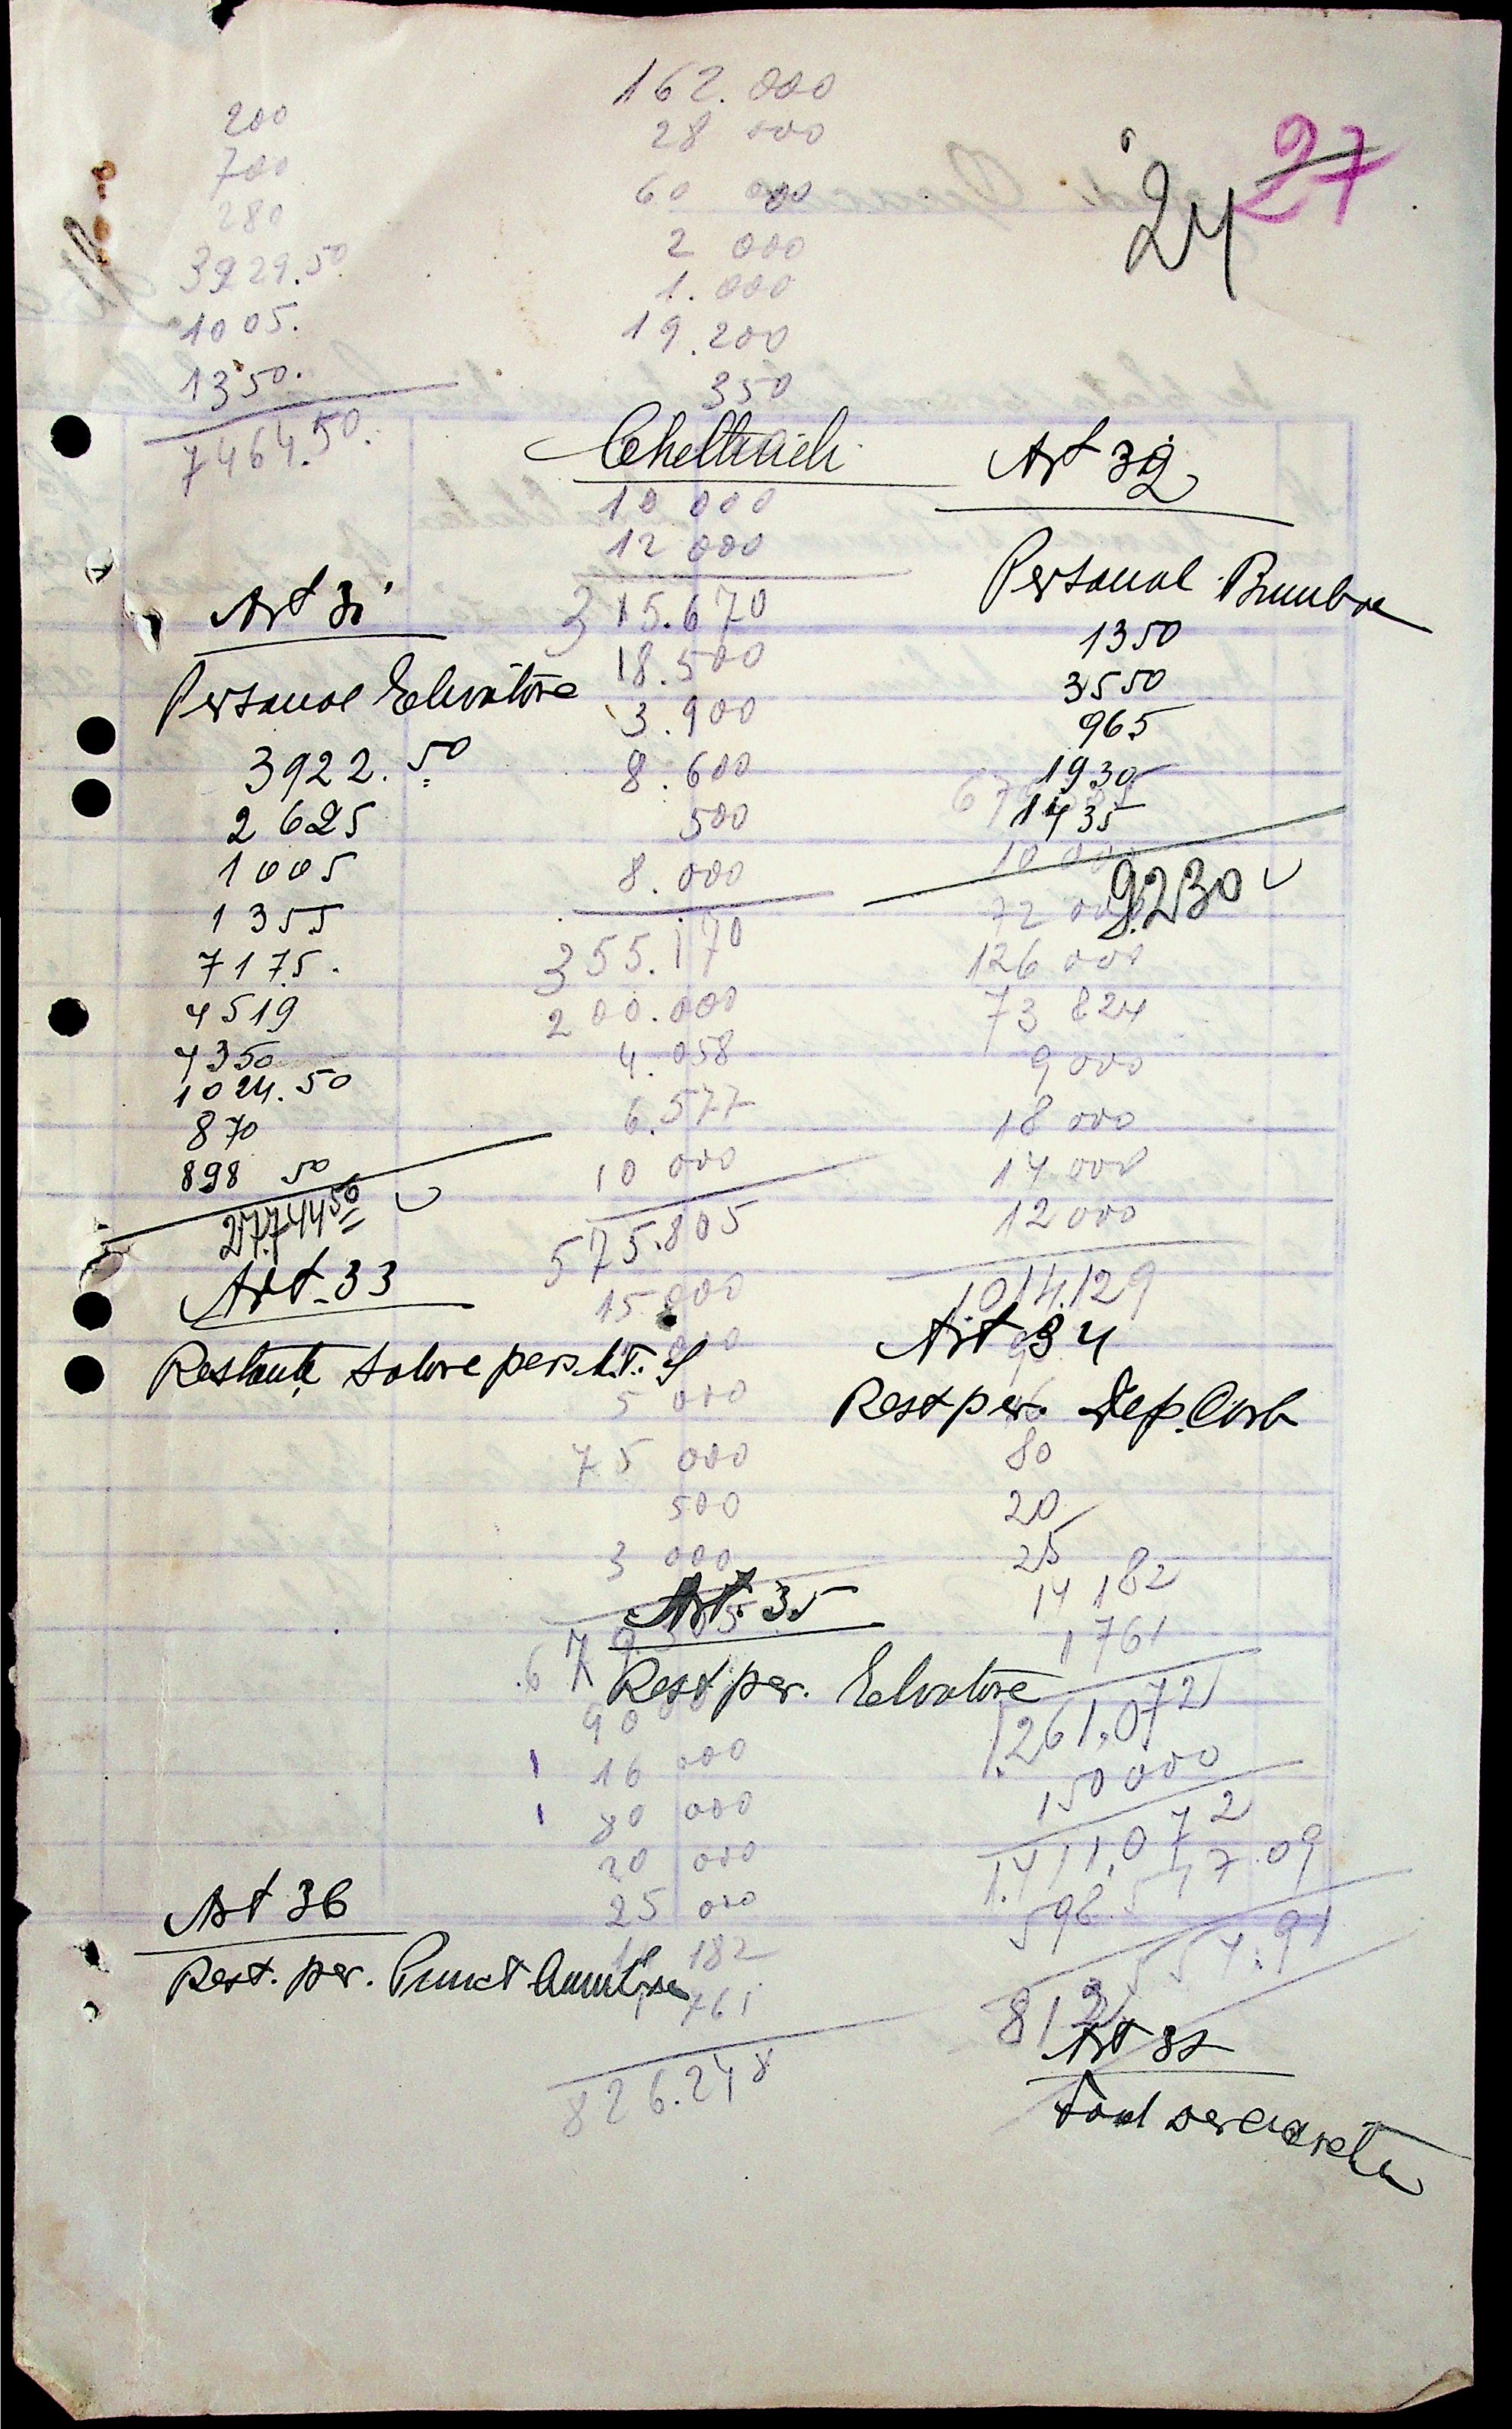 27
24
200
700
280
3929.50
1005.
1350.
7464.50.
162.000
28 000
60 000
2 000
1.000
19.200
350
10 000
12 000
315.670
18.500
3.900
8.600
500
8.000
355.170
200.000
4.058
6.577
10 000
575.805
15 000
5 000
75 000
500
3 000
16 000
80 000
20 000
25 000
182
761
826.248
Art 31
Personal
3922.50
2625
1005
1355
7175.
4519
4350
1024.50
870
898 50
27.744 50
Art 32
Personal
1350
3550
965
1930
1435
9.230
10 000
72 000
126 000
73 824
9 000
18 000
14 000
12 000
1014.129
Art. 33
Art 34
Rest per. Dep. Carb
80
20
25
14 182
1 761
1.261.072
150000
1.411.072
Art. 35
Rest per.
Art 36
Rest. per. Punct
Art 37
Fond